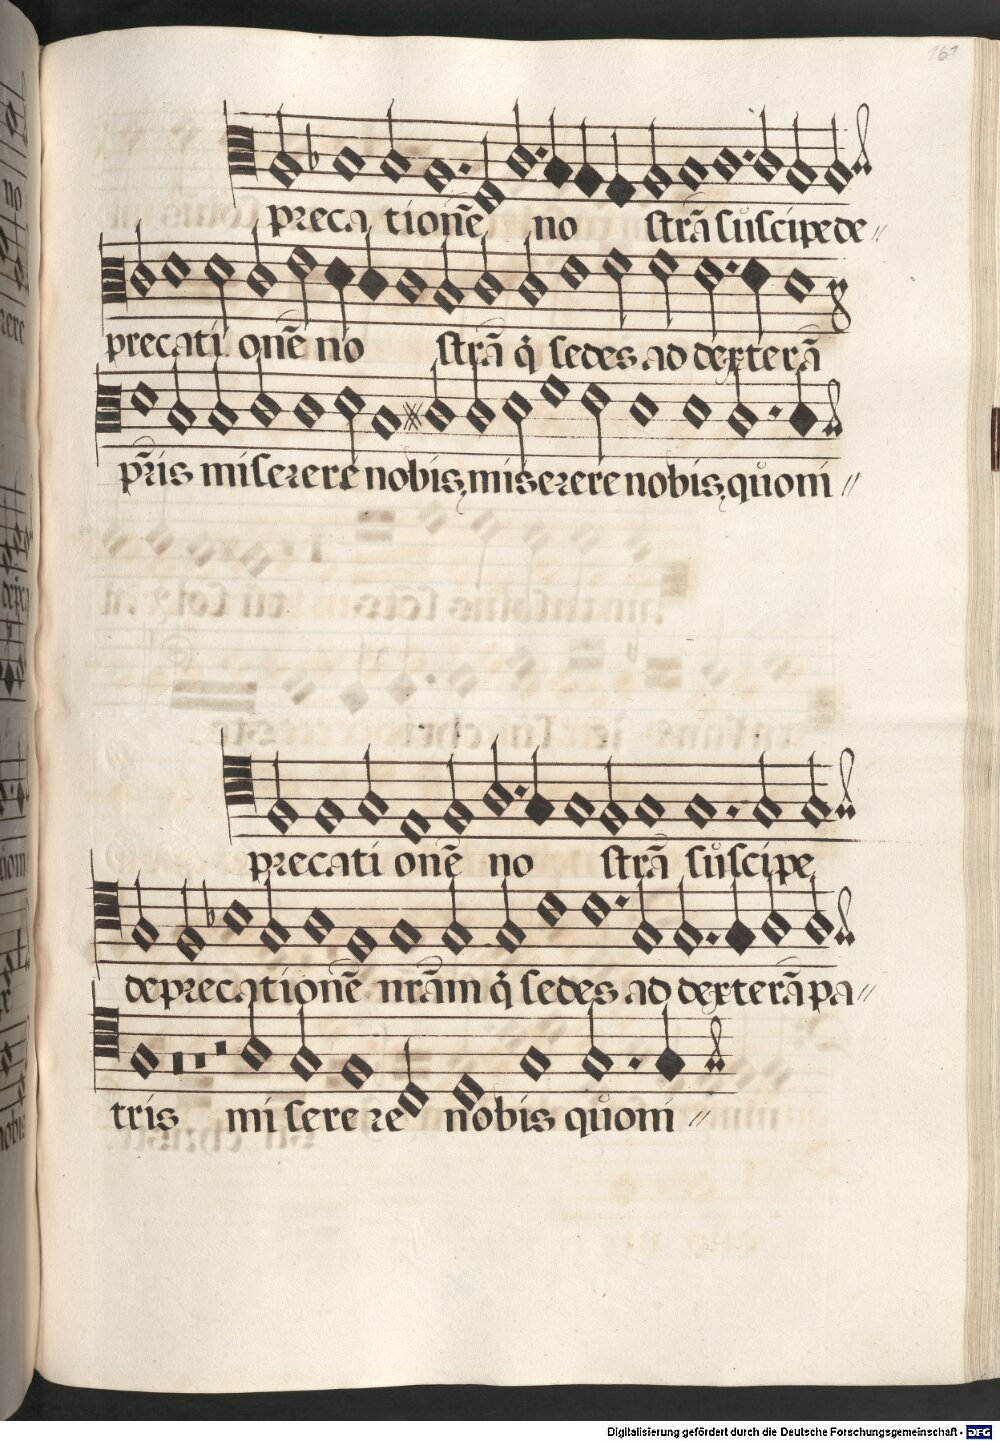 161
precationē no strā suscipe de
precationē no strā q̇ sedes ad dexterā
pris̄ miserere nobis, miserere nobis, quoni
precationē no strā suscipe
deprecationē nrām q̇ sedes ad dexterā pa
tris miserere nobis quoni
Digitalisierung gefördert durch die Deutsche Forschungsgemeinschaft - DFG